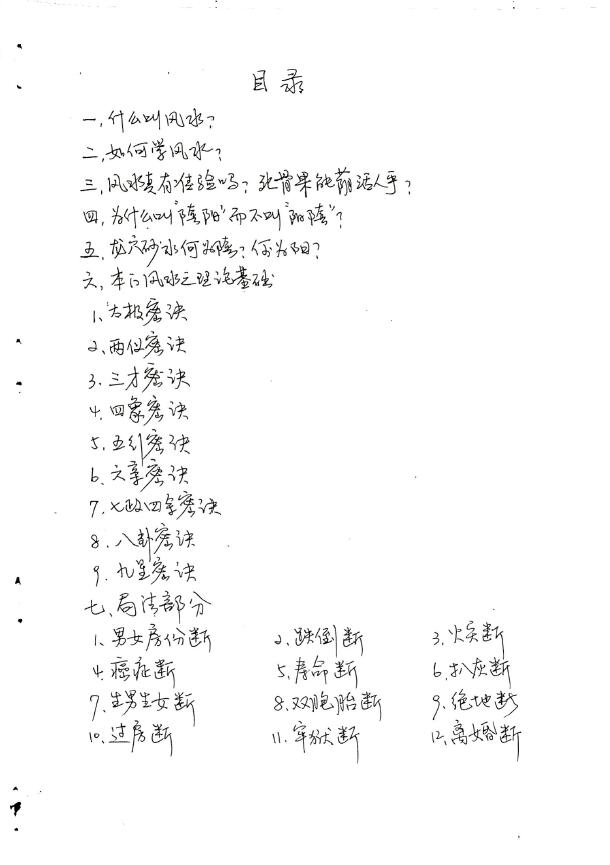 目录
一、什么叫风水?
二、如何学风水?
三、风水真有准验吗?张骨果能荫活人乎?
四、为什么叫"陰阳"而不叫"阳陰"?
五、龙穴砂水何为陰?何为阳?
六、本门风水之理论基础
1、太极密诀
2、两仪密诀
3、三才密诀
4、四象密诀
5、五行密诀
6、六亲密诀
7、七政四余密诀
8、八卦密诀
9、九星密诀
七、局法部分
1、男女房份断 2、跌倒断 3、火灾断
4、癌症断 5、寿命断 6、扒灰断
7、生男生女断 8、双胞胎断 9、绝地断
10、过房断 11、牢狱断 12、离婚断